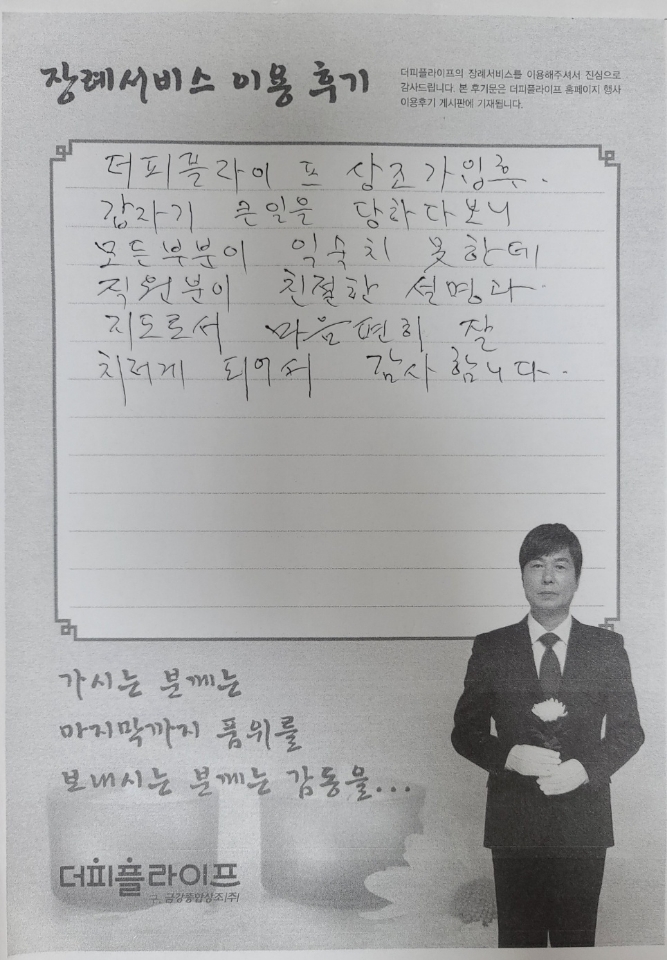 장례서비스 이용 후기
더피플라이프의 장례서비스를 이용해주셔서 진심으로
감사드립니다. 본 후기문은 더피플라이프 홈페이지 행사
이용후기 게시판에 기재됩니다.
더피플라이프 상조가입후.
갑자기 큰일을 당하다보니
모든부분이 익숙치 못한데
직원분이 친절한 설명과
지도로서 마음편히 잘
치러게 되어서 감사합니다.
가시는 분께는
마지막까지 품위를
보내시는 분께는 감동을...
더피플라이프
구. 금강종합상조(주)